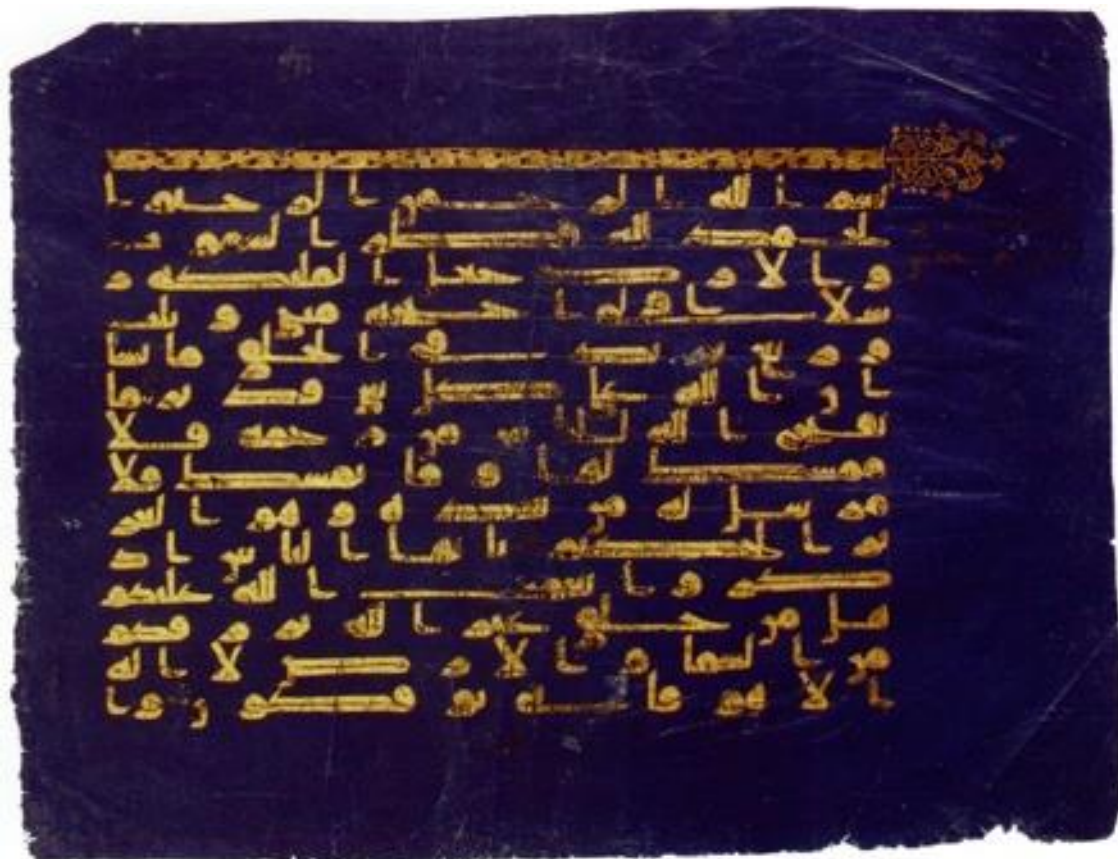 بسم الله الرحمن الرحيم ا
لحمد لله فطر السموت
والارض جعل الملئكة ر
سلا اولي اجنحة مثنى وثلث
وربع يزيد في الخلق ما يشا
ان الله على كل شي قدير ما
يفتح الله للناس من رحمة فلا
ممسك لها وما يمسك فلا
مرسل له من بعده وهو العز
يز الحكيم يايها الناس اذ
كروا نعمت الله عليكم
هل من خلق غير الله يرزقكم
من السما والارض لا اله
الا هو فانى توفكون وا